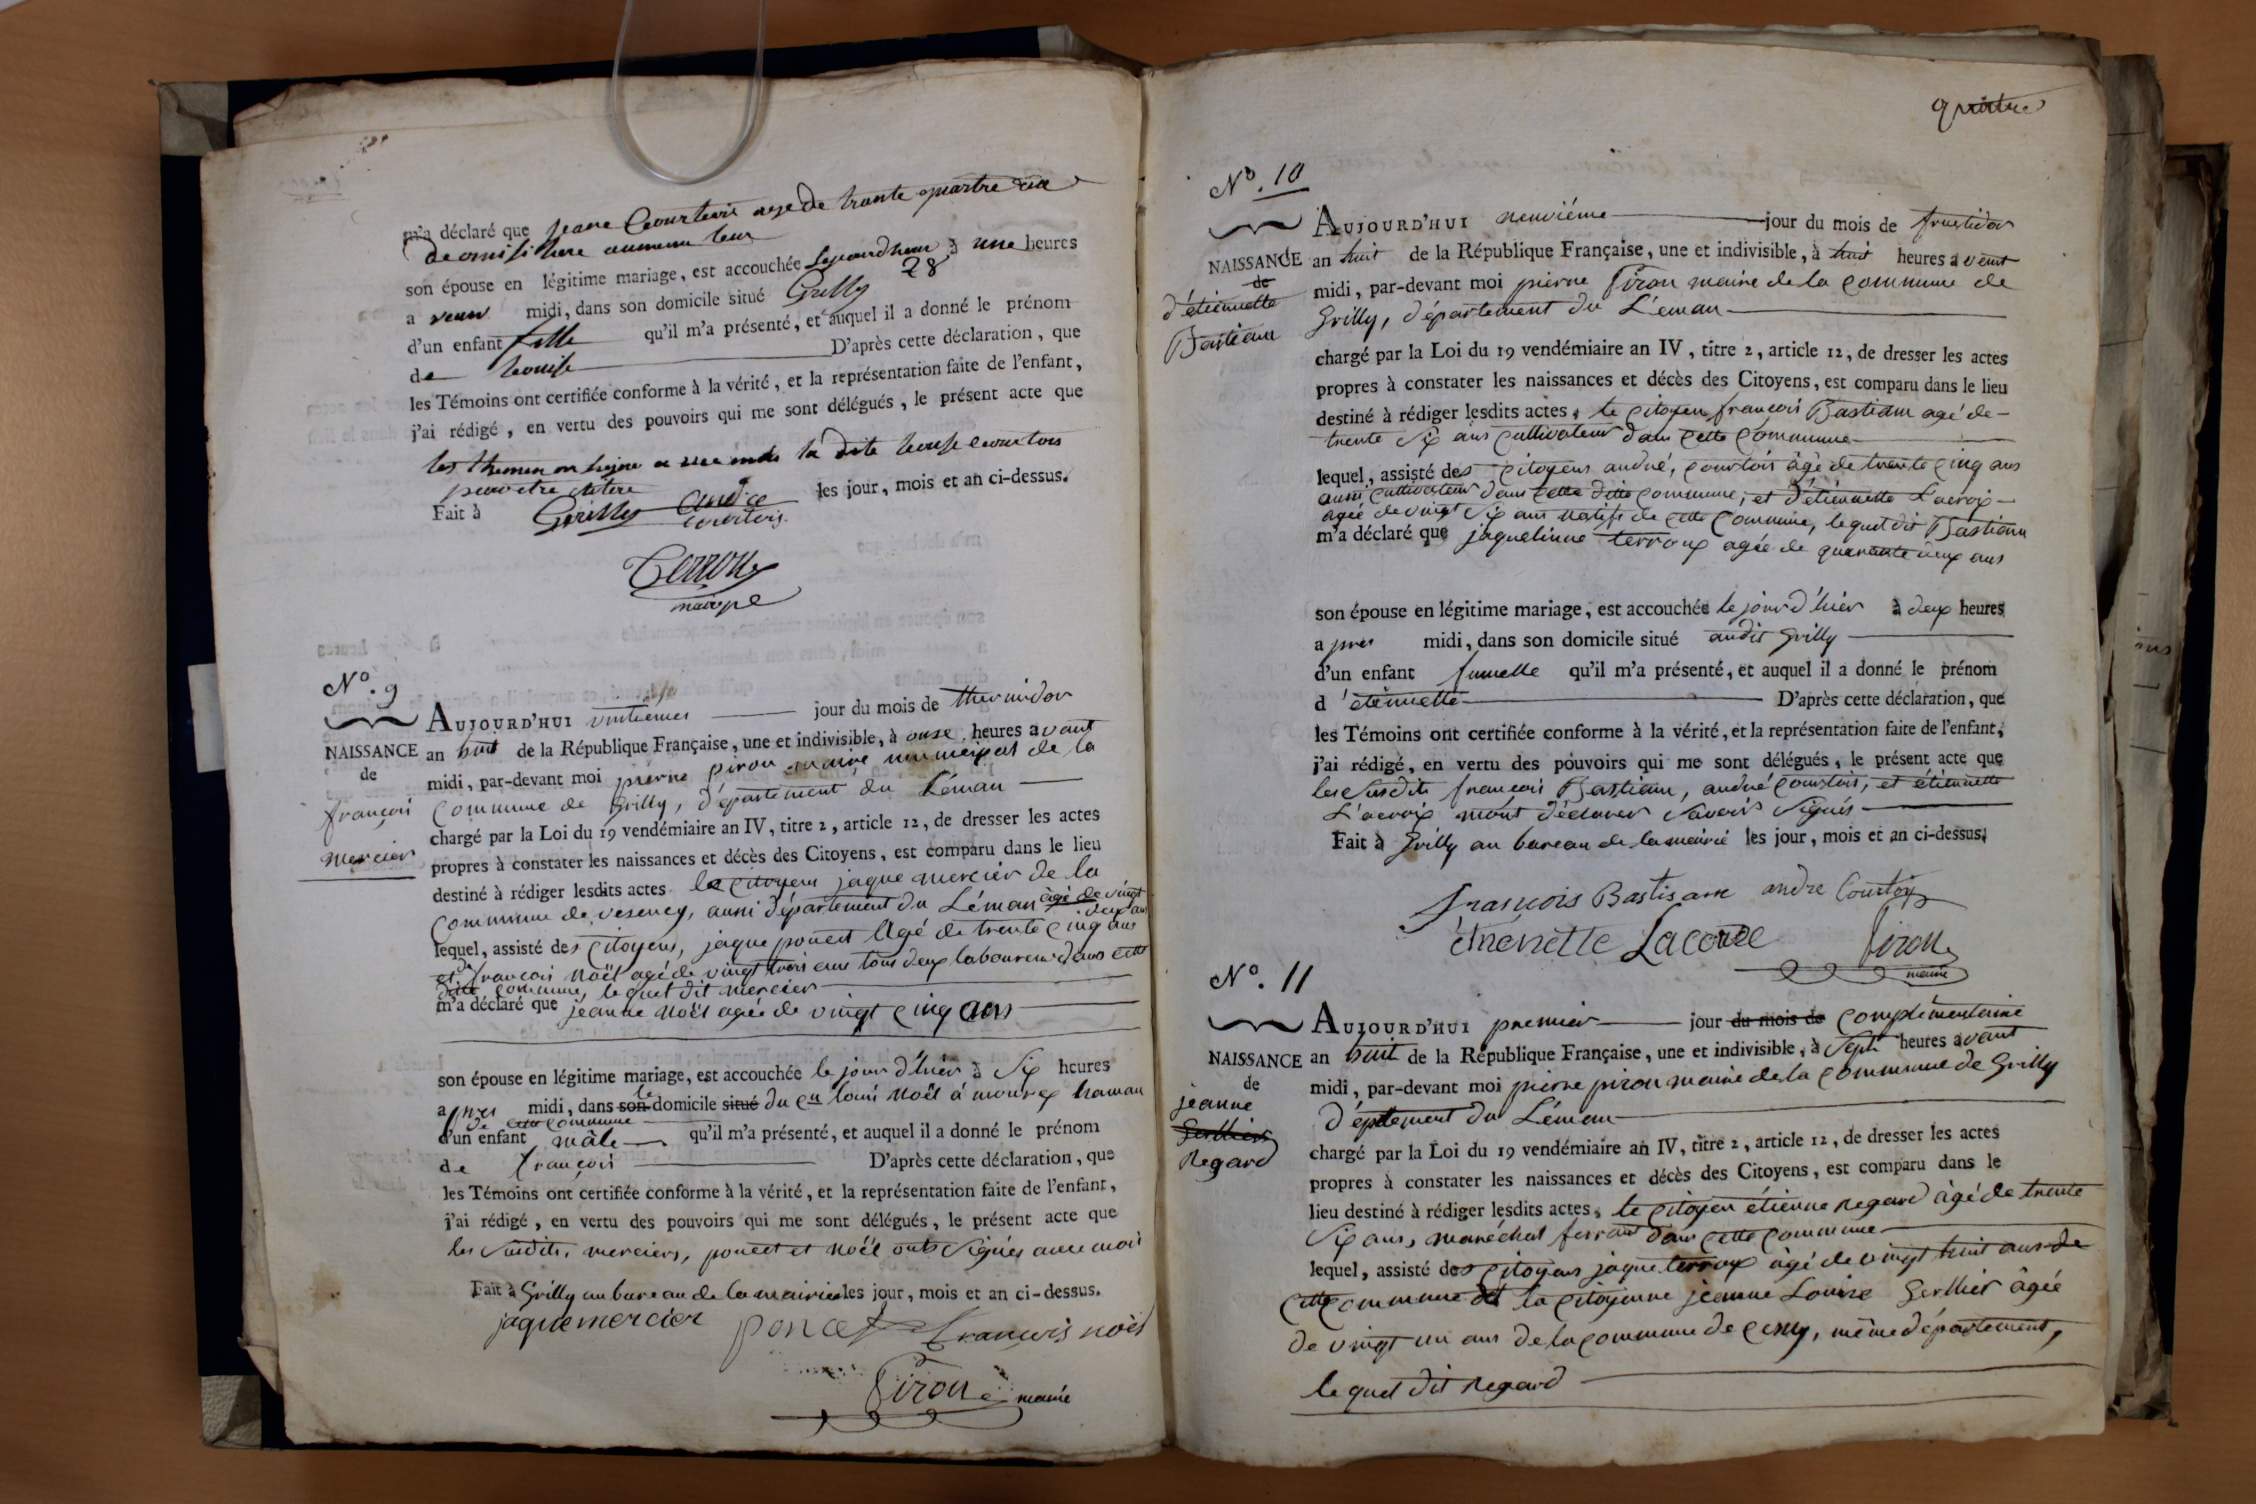 m'a déclaré que jeane Courtois age de trante quatre an
son épouse en légitime mariage, est accouchée à une heures
28
a midi, dans son domicile situé Grilly
d'un enfant fille qu'il m'a présenté, et auquel il a donné le prénom
de Louise D'après cette déclaration, que
les Témoins ont certifiée conforme à la vérité, et la représentation faite de l'enfant,
j'ai rédigé, en vertu des pouvoirs qui me sont délégués, le présent acte que
la dite Louise courtois
Fait à Grilly andre courtois les jour, mois et an ci-dessus.
N°. 9
AUJOURD'HUI vintiemes jour du mois de thermidor
NAISSANCE de françois mercier
an huit de la République Française, une et indivisible, à onse heures avant
midi, par-devant moi pierre piron maire municipal de la
Commune de Grilly, département du Léman
chargé par la Loi du 19 vendémiaire an IV, titre 2, article 12, de dresser les actes
propres à constater les naissances et décès des Citoyens, est comparu dans le lieu
destiné à rédiger lesdits actes le citoyen jaque mercier de la
Commune de vesency, aussi département du Léman âgé de vingt deux ans
lequel, assisté des Citoyens, jaque poncet Agé de trente cinq ans
et de françois Noël agé de vingt trois ans tous deux laboureur dans cette
dite commune, lequel dit mercier
m'a déclaré que jeanne Noël agée de vingt cinq ans
son épouse en légitime mariage, est accouchée le jour d'hier à six heures
apres midi, dans son le domicile situé du Cn louis Noël à mourex hamau
de cette commune
d'un enfant mâle qu'il m'a présenté, et auquel il a donné le prénom
de françois D'après cette déclaration, que
les Témoins ont certifiée conforme à la vérité, et la représentation faite de l'enfant,
j'ai rédigé, en vertu des pouvoirs qui me sont délégués, le présent acte que
les susdits, merciers, poncet et Noël onts signés avec moi
Fait à Grilly au bureau de la mairie les jour, mois et an ci-dessus.
jaque mercier poncet francois noel
Piron maire
quatre
N°. 10
AUJOURD'HUI neuviéme jour du mois de fructidor
NAISSANCE de d'étiennette Bastian
an huit de la République Française, une et indivisible, à huit heures avant
midi, par-devant moi pierre Piron maire de la Commune de
Grilly, département du Léman
chargé par la Loi du 19 vendémiaire an IV, titre 2, article 12, de dresser les actes
propres à constater les naissances et décès des Citoyens, est comparu dans le lieu
destiné à rédiger lesdits actes, le citoyen françois Bastian agé de
trente six ans Cultivateur dans cette Commune
lequel, assisté des Citoyens andré, courtois âgé de trente cinq ans
aussi cultivateur dans cette dite commune, et d'étiennette Lacroix
agée de vingt six ans natifs de cette Commune, lequel dit Bastian
m'a déclaré que jaquelinne terroux agée de quarante deux ans
son épouse en légitime mariage, est accouchée le jour d'hier à deux heures
apres midi, dans son domicile situé audit Grilly
d'un enfant fumelle qu'il m'a présenté, et auquel il a donné le prénom
d'étiennette D'après cette déclaration, que
les Témoins ont certifiée conforme à la vérité, et la représentation faite de l'enfant,
j'ai rédigé, en vertu des pouvoirs qui me sont délégués, le présent acte que
les susdits françois Bastian, andré courtois, et étiennette
Lacroix mont déclarer savoir signés
Fait à Grilly au bureau de la mairie les jour, mois et an ci-dessus,
francois Bastisan andre Courtois
Piron maire
N°. 11
AUJOURD'HUI premier jour du mois de complémentaire
NAISSANCE de jeanne Gerllier Regard
an huit de la République Française, une et indivisible, à sept heures avant
midi, par-devant moi pierre piron maire de la Commune de Grilly
département du Léman
chargé par la Loi du 19 vendémiaire an IV, titre 2, article 12, de dresser les actes
propres à constater les naissances et décès des Citoyens, est comparu dans le
lieu destiné à rédiger lesdits actes, le citoyen étienne Regard âgé de trente
six ans, maréchal ferrant dans cette commune
lequel, assisté des citoyens jaque terroux âgé de vingt huit ans de
cette commune et la citoyenne jeanne Louise Gerllier âgée
de vingt un ans de la commune de cessy, même département,
lequel dit Regard